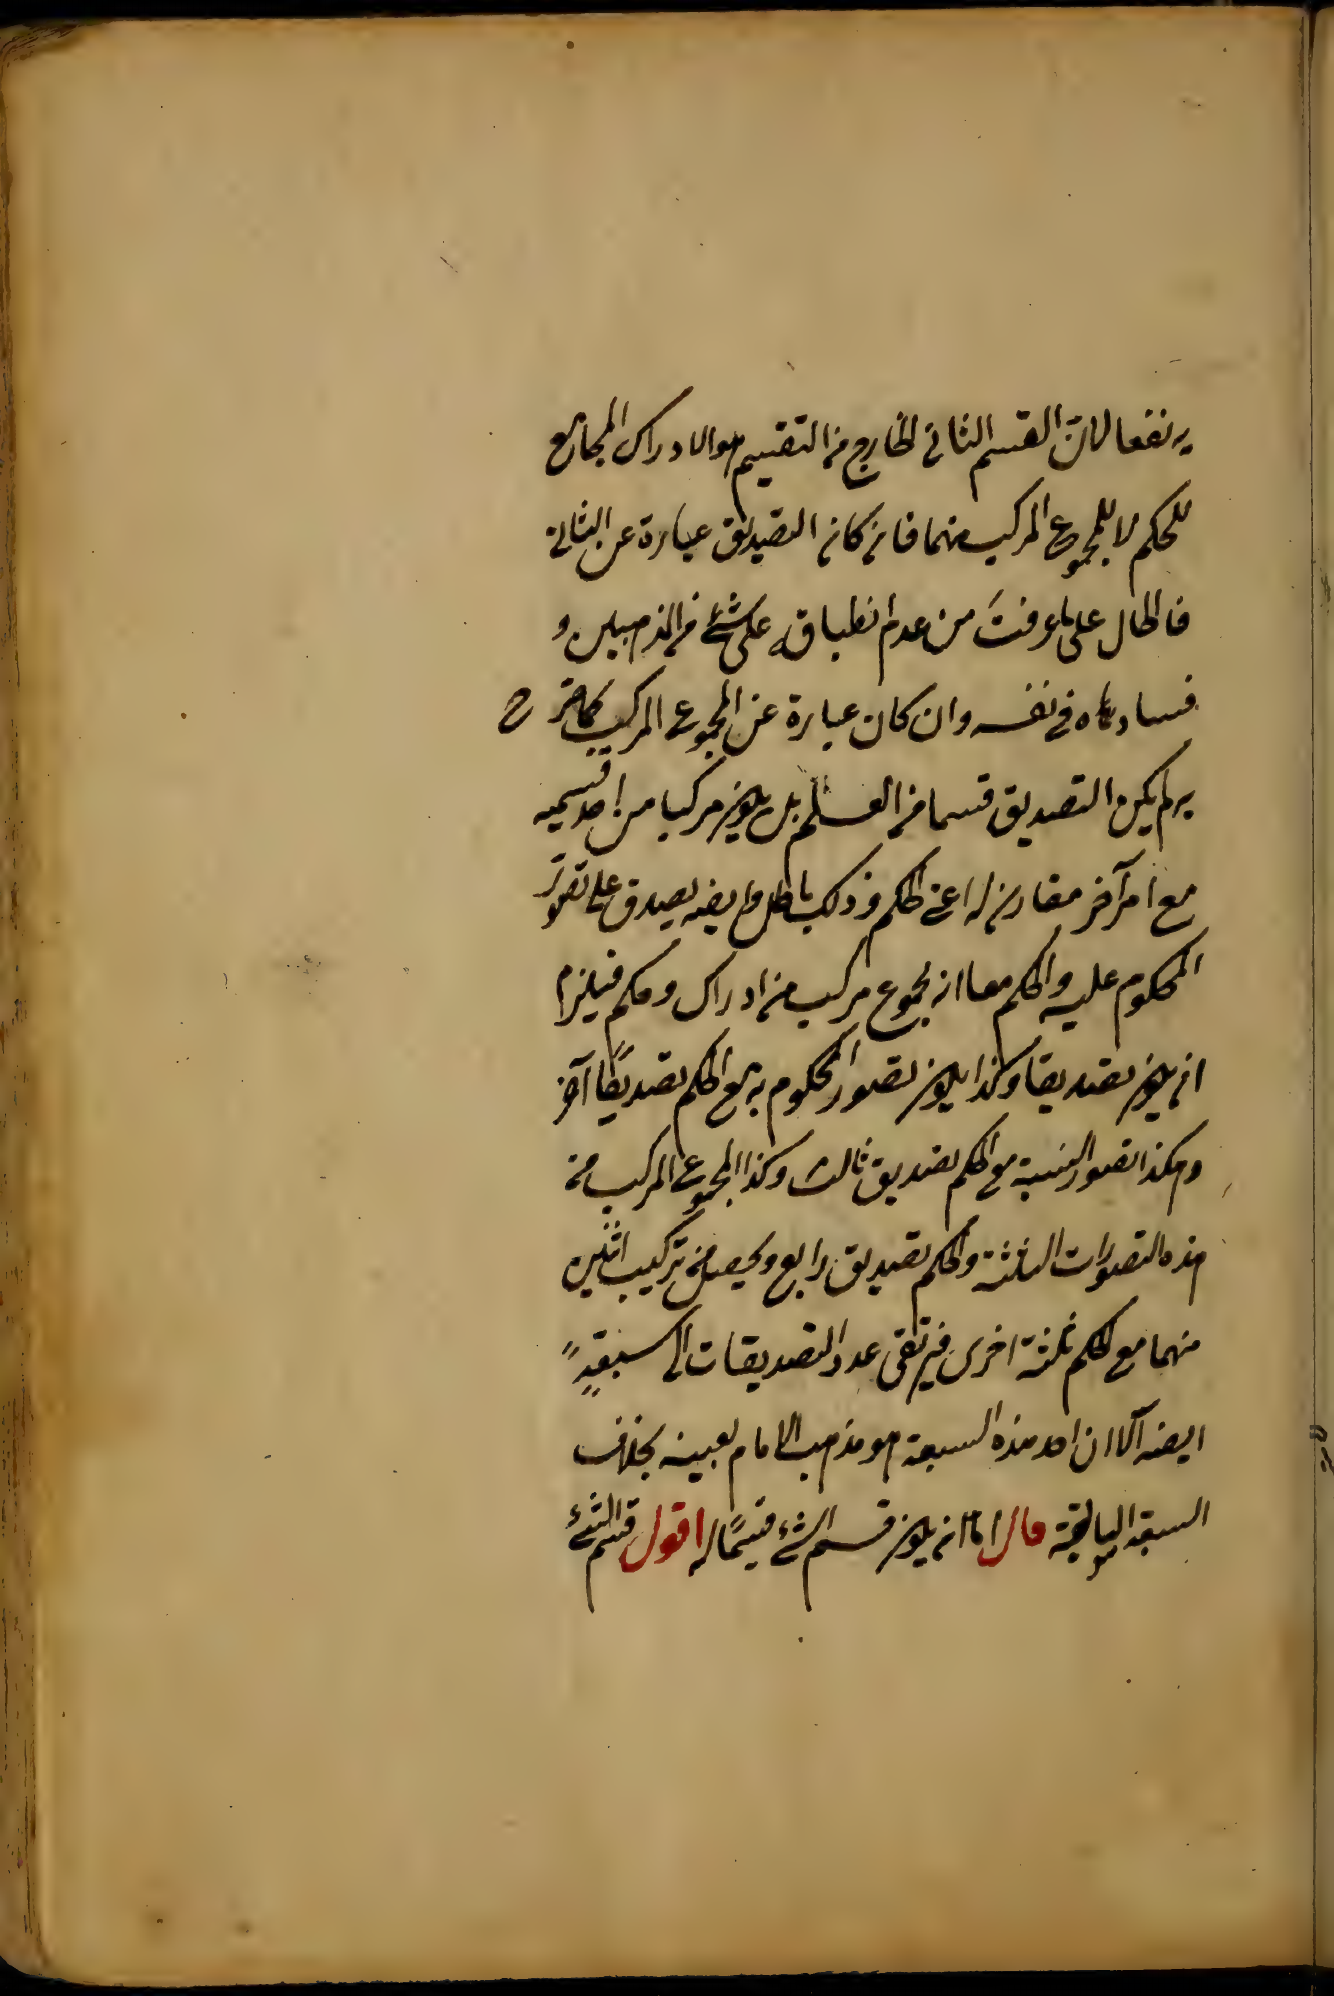 يه نفعا لان القسم الثاني الخارج من التقسيم هو الادراك المجامع
للحكم لا للمجموع المركب منهما فان كان التصديق عبارة عن الثاني
فالحال على ما عرفت من عدم انطباقه على شئ من المذهبين و
فساده في نفسه وان كان عبارة عن المجموع المركب كما مر ح
لم يكن التصديق قسما من العلم بل يكون مركبا من احد قسميه
مع امر آخر مقارن له اعني الحكم وذلك باطل وايضه يصدق على تصور
المحكوم عليه والحكم معا انه مجموع مركب من ادراك وحكم فيلزم
ان يكون تصديقا وكذا يكون تصور المحكوم به مع الحكم تصديقا آخر
وهكذا تصور النسبة مع الحكم تصديق ثالث وكذا المجموع المركب من
هذه التصورات الثلثة والحكم تصديق رابع ويحصل من تركيب اثنين
منهما مع الحكم ثلثة اخرى فيرتقى عدد التصديقات الى سبعة
ايضه الا ان احد هذه السبعة هو مذهب الامام بعينه بخلاف
السبعة السابقة قال اما ان يكون قسم الشئ قسيما له اقول قسم الشئ